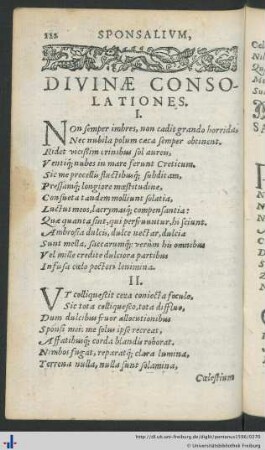 122 SPONSALIVM,
DIVINÆ CONSO-
LATIONES.
I.
NOn semper imbres, non cadit grando horrida,
Nec nubila polum cæca semper obtinent,
Ridet vicissim crinibus sol aureis,
Ventiq; nubes in mare ferunt Creticum.
Sic me procellis fluctibusq; subditam,
Pressamq; longiore mœstitudine,
Consueta tandem molliunt solatia,
Luctus meos, lacrymasq; compensantia:
Quæ quanta sint, qui perfruuntur, hi sciunt.
Ambrosia dulcis, dulce nectar, dulcia
Sunt mella, saccarumq; verùm his omnibus
Vel mille credite dulciora partibus
Infusa cælo pectori lenimina.
II.
VT colliquescit cera coniecta foculo,
Sic tota colliquesco, tota diffluo,
Dum dulcibus fruor allocutionibus
Sponsi mei: me solus ipse recreat,
Affatibusq; corda blandis roborat.
Nimbos fugat, reparatq; clara lumina,
Terrena nulla, nulla sunt solamina,
Cælestium
http://dl.ub.uni-freiburg.de/diglit/pontanus1596/0170
© Universitätsbibliothek Freiburg